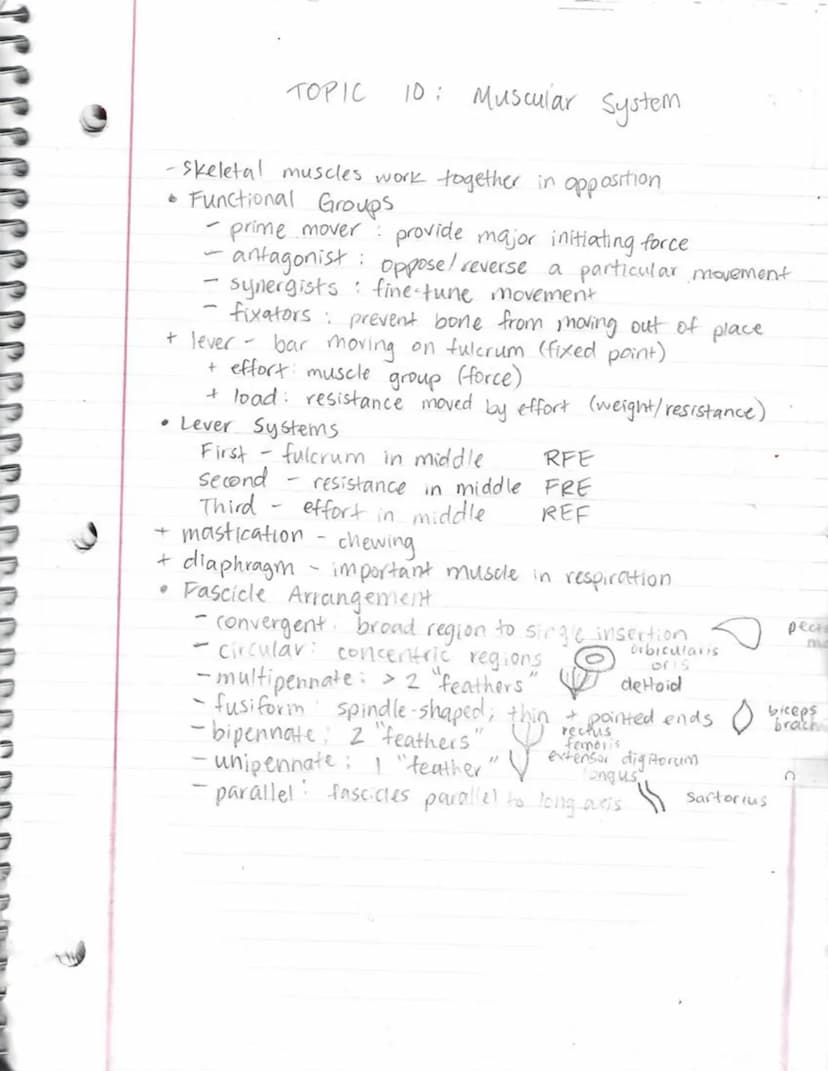 TOPIC 10: Muscular System
- skeletal muscles work together in opposition
• Functional Groups
- prime mover : provide major initiating force
- antagonist : oppose/reverse a particular movement
- synergists : fine-tune movement
- fixators : prevent bone from moving out of place
+ lever - bar moving on fulcrum (fixed point)
+ effort: muscle group (force)
+ load: resistance moved by effort (weight/resistance)
• Lever Systems
First - fulcrum in middle RFE
Second - resistance in middle FRE
Third - effort in middle REF
+ mastication - chewing
+ diaphragm - important muscle in respiration
• Fascicle Arrangement
- convergent: broad region to single insertion
- circular: concentric regions orbicularis oris
- multipennate: > 2 "feathers" deltoid
- fusiform: spindle-shaped; thin + pointed ends biceps
- bipennate: 2 "feathers" rectus femoris
- unipennate: 1 "feather" extensor digitorum longus
- parallel: fascicles parallel to long axis sartorius